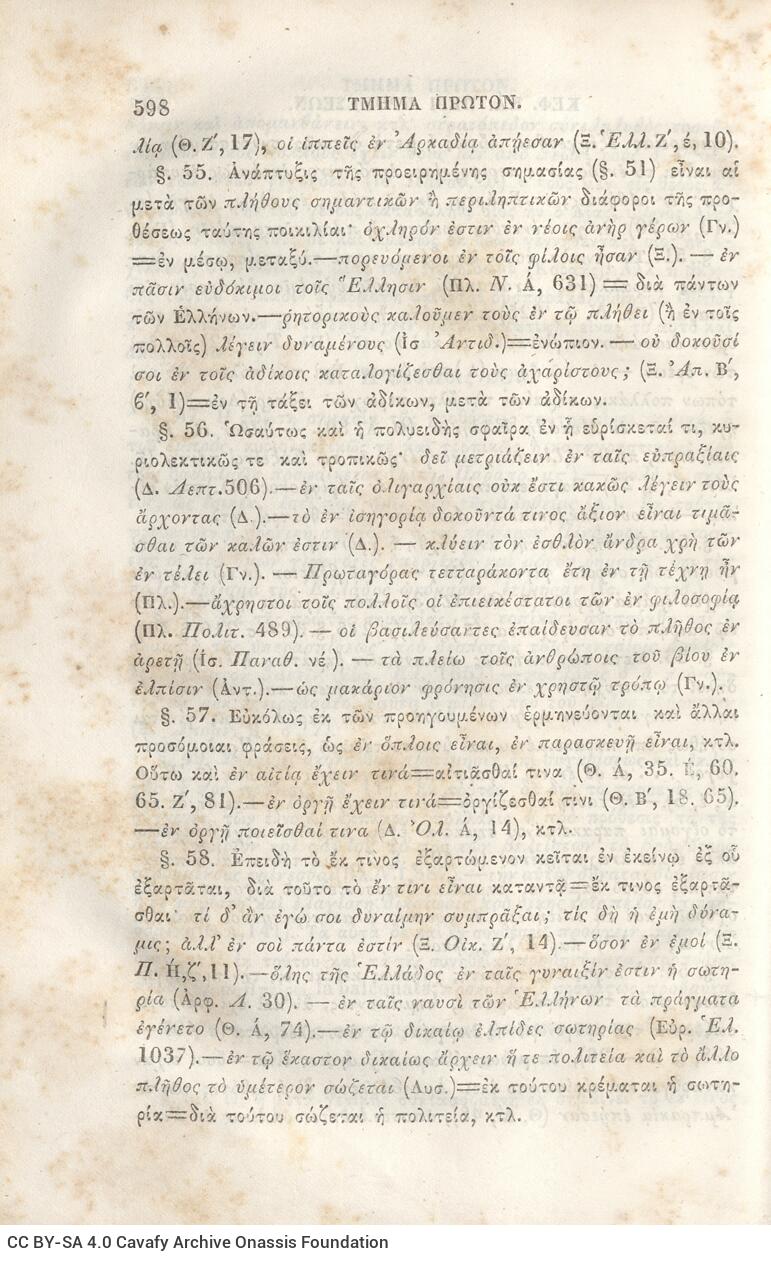 598 ΤΜΗΜΑ ΠΡΩΤΟΝ.
λίᾳ (Θ. Ζ΄, 17), οἱ ἱππεῖς ἐν Ἀρκαδίᾳ ἀπῄεσαν (Ξ. Ἑλλ. Ζ΄, έ, 10).
§. 55. Ἀνάπτυξις τῆς προειρημένης σημασίας (§. 51) εἶναι αἱ
μετὰ τῶν πλήθους σημαντικῶν ἢ περιληπτικῶν διάφοροι τῆς προ-
θέσεως ταύτης ποικιλίαι· ὀχληρόν ἐστιν ἐν νέοις ἀνὴρ γέρων (Γν.)
=ἐν μέσῳ, μεταξύ.—πορευόμενοι ἐν τοῖς φίλοις ἦσαν (Ξ.). — ἐν
πᾶσιν εὐδόκιμοι τοῖς Ἕλλησιν (Πλ. Ν. Ά, 631) = διὰ πάντων
τῶν Ἑλλήνων.—ῥητορικοὺς καλοῦμεν τοὺς ἐν τῷ πλήθει (ἢ ἐν τοῖς
πολλοῖς) λέγειν δυναμένους (Ἰσ Ἀντιδ.)=ἐνώπιον. — οὐ δοκοῦσί
σοι ἐν τοῖς ἀδίκοις καταλογίζεσθαι τοὺς ἀχαρίστους; (Ξ. Ἀπ. Β΄,
β΄, 1)=ἐν τῇ τάξει τῶν ἀδίκων, μετὰ τῶν ἀδίκων.
§. 56. Ὡσαύτως καὶ ἡ πολυειδὴς σφαῖρα ἐν ᾗ εὑρίσκεταί τι, κυ-
ριολεκτικῶς τε καὶ τροπικῶς· δεῖ μετριάζειν ἐν ταῖς εὐπραξίαις
(Δ. Λεπτ. 506).—ἐν ταῖς ὀλιγαρχίαις οὐκ ἔστι κακῶς λέγειν τοὺς
ἄρχοντας (Δ.).—τὸ ἐν ἰσηγορίᾳ δοκοῦντά τινος ἄξιον εἶναι τιμᾶ-
σθαι τῶν καλῶν ἐστιν (Δ.). — κλύειν τὸν ἐσθλὸν ἄνδρα χρὴ τῶν
ἐν τέλει (Γν.). — Πρωταγόρας τετταράκοντα ἔτη ἐν τῇ τέχνῃ ἦν
(Πλ.).—ἄχρηστοι τοῖς πολλοῖς οἱ ἐπιεικέστατοι τῶν ἐν φιλοσοφίᾳ
(Πλ. Πολιτ. 489). — οἱ βασιλεύσαντες ἐπαίδευσαν τὸ πλῆθος ἐν
ἀρετῇ (Ἰσ. Παναθ. νέ). — τὰ πλείω τοῖς ἀνθρώποις τοῦ βίου ἐν
ἐλπίσιν (Ἀντ.).—ὡς μακάριον φρόνησις ἐν χρηστῷ τρόπῳ (Γν.).
§. 57. Εὐκόλως ἐκ τῶν προηγουμένων ἑρμηνεύονται καὶ ἄλλαι
προσόμοιαι φράσεις, ὡς ἐν ὅπλοις εἶναι, ἐν παρασκευῇ εἶναι, κτλ.
Οὕτω καὶ ἐν αἰτίᾳ ἔχειν τινά=αἰτιᾶσθαί τινα (Θ. Ά, 35. Έ, 60.
65. Ζ΄, 81).—ἐν ὀργῇ ἔχειν τινά=ὀργίζεσθαί τινι (Θ. Β΄, 18. 65).
—ἐν ὀργῇ ποιεῖσθαί τινα (Δ. Ὀλ. Ά, 14), κτλ.
§. 58. Ἐπειδὴ τὸ ἔκ τινος ἐξαρτώμενον κεῖται ἐν ἐκείνῳ ἐξ οὗ
ἐξαρτᾶται, διὰ τοῦτο τὸ ἔν τινι εἶναι καταντᾷ=ἔκ τινος ἐξαρτᾶ-
σθαι· τί δ' ἂν ἐγώ σοι δυναίμην συμπρᾶξαι; τίς δὴ ἡ ἐμὴ δύνα-
μις; ἀλλ' ἐν σοὶ πάντα ἐστίν (Ξ. Οἰκ. Ζ΄, 14).—ὅσον ἐν ἐμοί (Ξ.
Π. Ή, ζ΄, 11).—ὅλης τῆς Ἑλλάδος ἐν ταῖς γυναιξίν ἐστιν ἡ σωτη-
ρία (Ἀρφ. Λ. 30). — ἐν ταῖς ναυσὶ τῶν Ἑλλήνων τὰ πράγματα
ἐγένετο (Θ. Ά, 74).—ἐν τῷ δικαίῳ ἐλπίδες σωτηρίας (Εὐρ. Ἑλ.
1037).—ἐν τῷ ἕκαστον δικαίως ἄρχειν ἥ τε πολιτεία καὶ τὸ ἄλλο
πλῆθος τὸ ὑμέτερον σώζεται (Λυσ.)=ἐκ τούτου κρέμαται ἡ σωτη-
ρία=διὰ τούτου σώζεται ἡ πολιτεία, κτλ.
CC BY-SA 4.0 Cavafy Archive Onassis Foundation